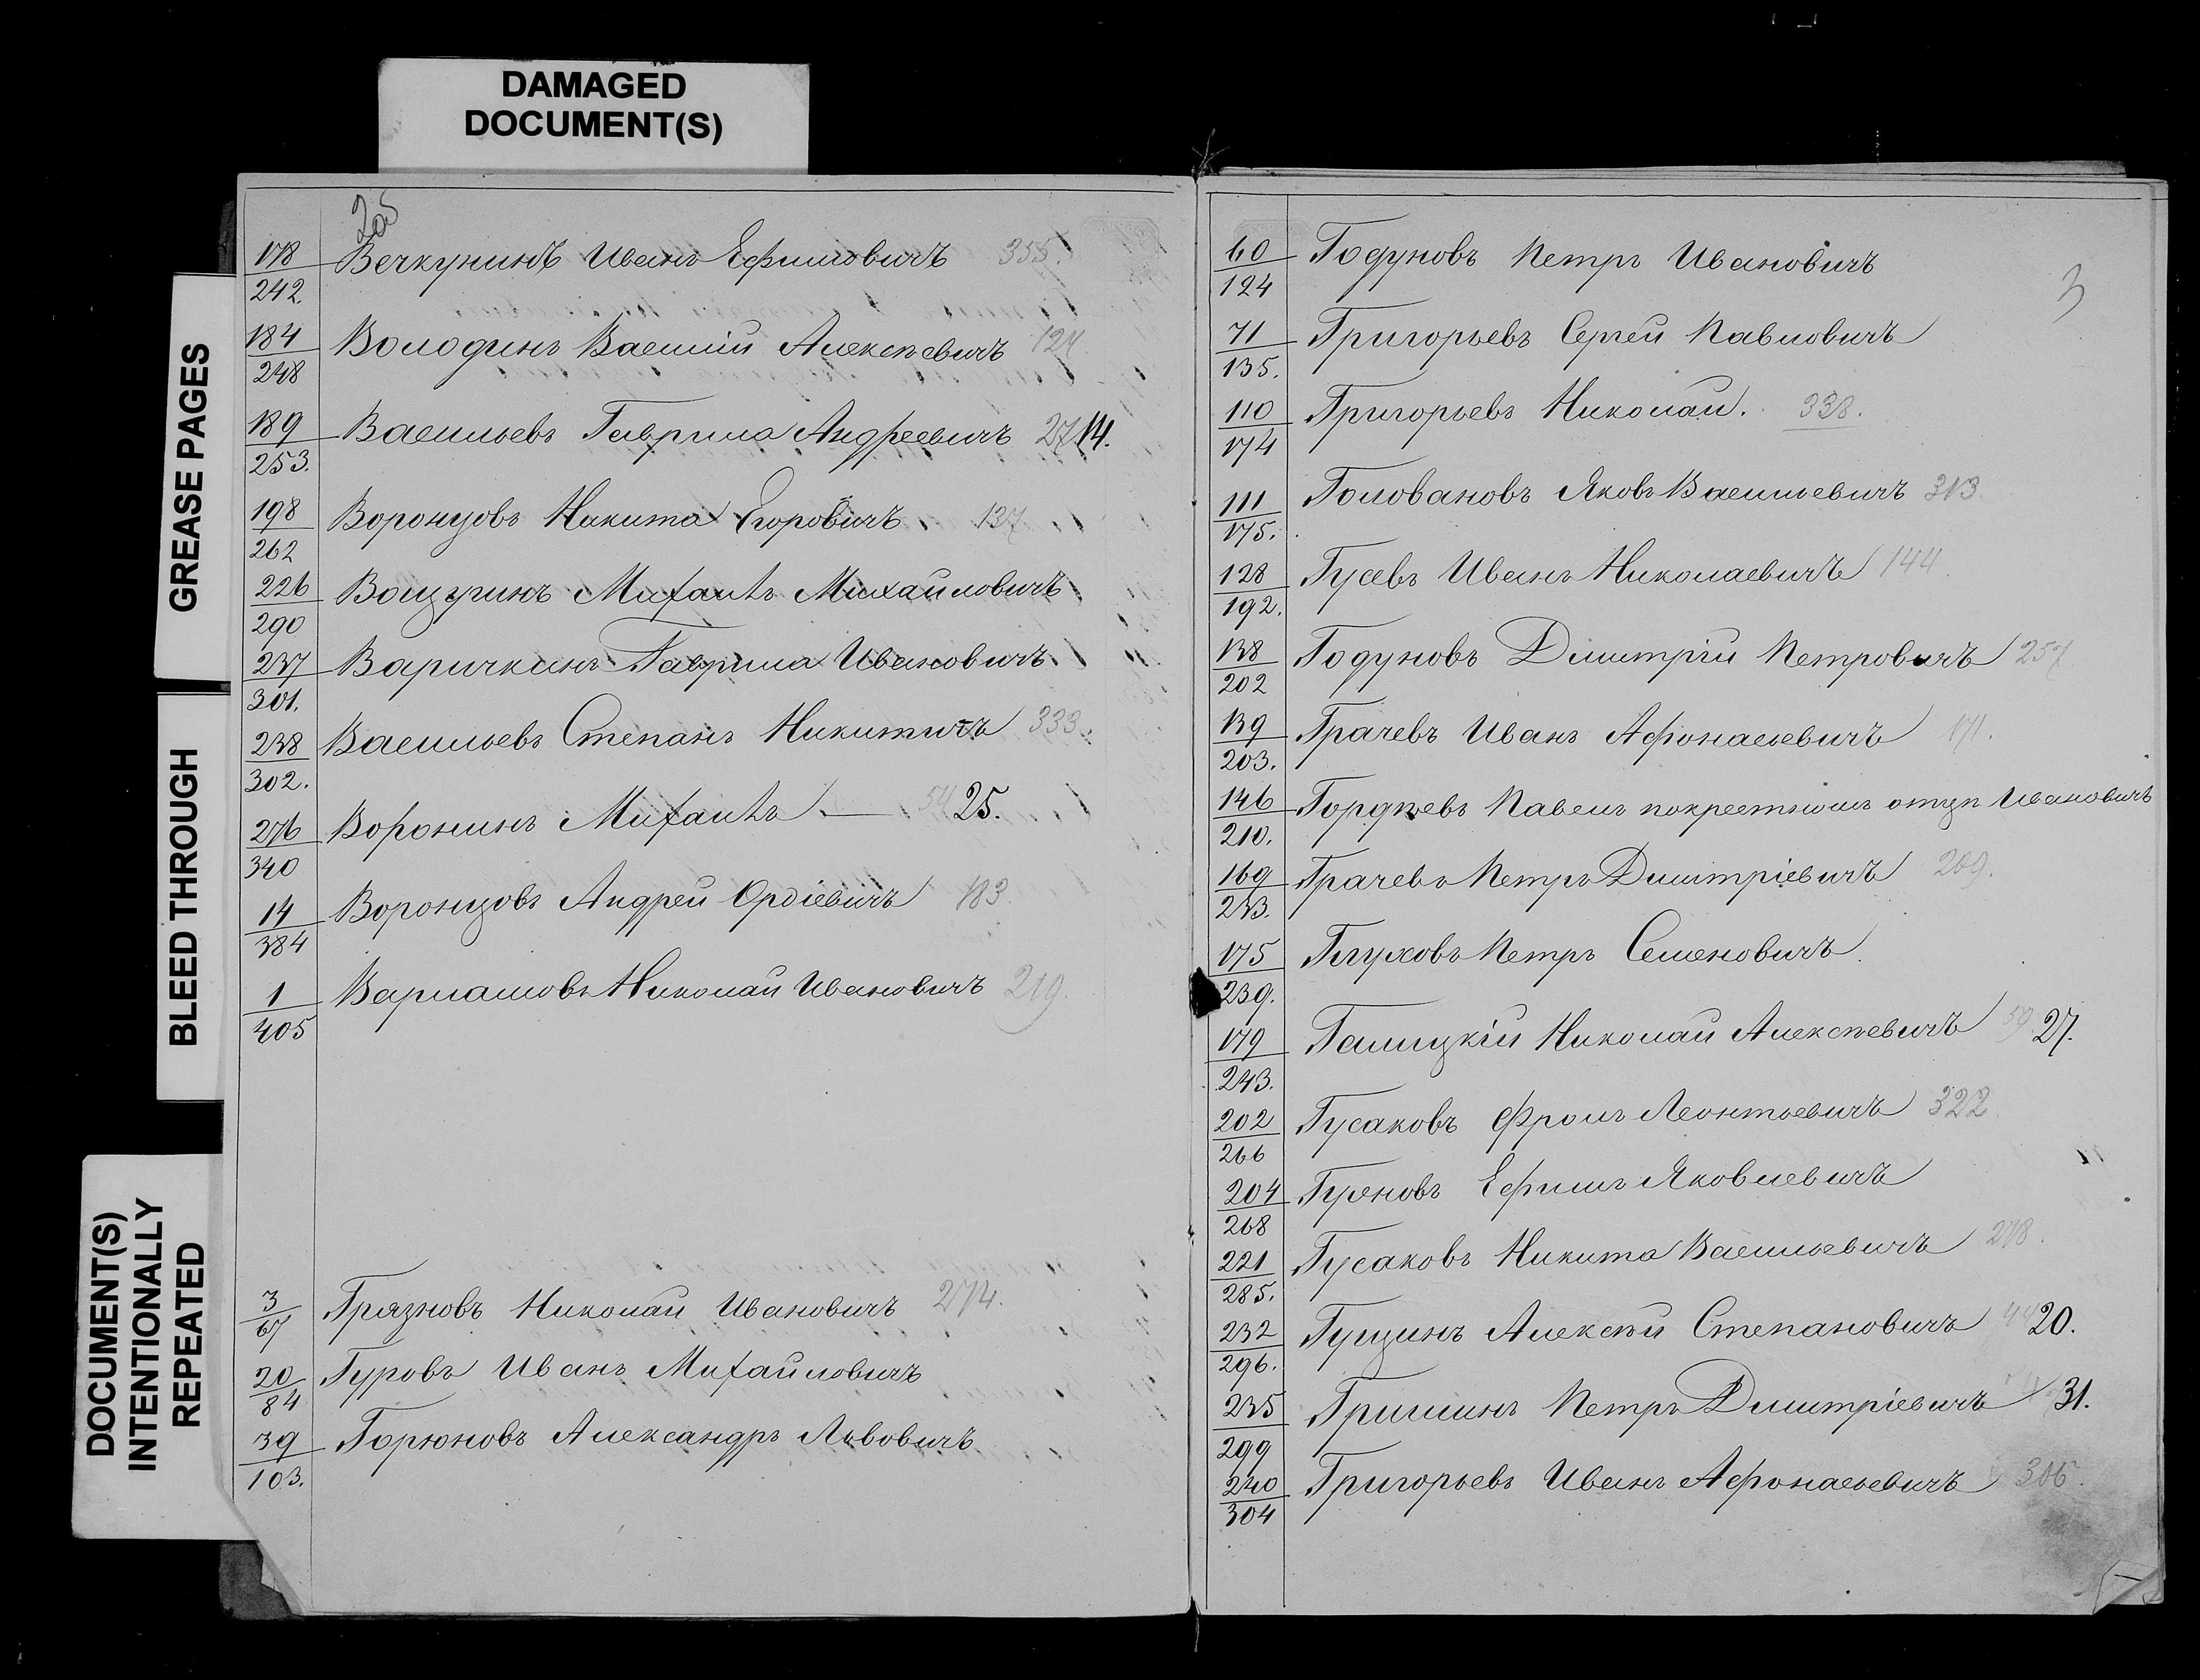 DAMAGED
DOCUMENT(S)
GREASE PAGES
BLEED THROUGH
DOCUMENT(S)
INTENTIONALLY
REPEATED
178/242. Вечкунинъ Иванъ Ефимовичъ 355.
184/248 Володинъ Василий Алексѣевичъ 124
189/253. Васильевъ Гаврила Андреевичъ 27 14.
198/262 Воронцовъ Никита Егоровичъ 137
226/290 Вощуринъ Михаилъ Михайловичъ
237/301. Варичкинъ Гаврила Ивановичъ
238/302. Васильевъ Степанъ Никитичъ 333.
276/340 Воронинъ Михаилъ — 54 25.
14/384 Воронцовъ Андрей 183.
1/405 Варлашовъ Николай Ивановичъ 219.
3/67 Грязновъ Николай Ивановичъ 274.
20/84 Гуровъ Иванъ Михайловичъ
39/103. Горюновъ Александръ Львовичъ
3
60/124 Годуновъ Петръ Ивановичъ
71/135. Григорьевъ Сергей Павловичъ
110/174 Григорьевъ Николай. 338.
111/175. Головановъ Яковъ Васильевичъ 313.
128/192. Гусевъ Иванъ Николаевичъ 144.
138/202 Годуновъ Димитрій Петровичъ 257
139/203. Грачевъ Иванъ Афонасьевичъ 171.
146/210. Гордѣевъ Павелъ покрестномъ отцѣ Ивановичъ
169/233. Грачевъ Петръ Димитріевичъ 209.
175/239. Глуховъ Петръ Семеновичъ.
179/243. Галицкій Николай Алексѣевичъ 59 27.
202/266 Гусаковъ Фролъ Леонтьевичъ 322.
204/268 Ефимъ Яковлевичъ
221/285. Гусаковъ Никита Васильевичъ 278.
232/296. Гущинъ Алексѣй Степановичъ 44 20.
235/299 Гришинъ Петръ Димитріевичъ 31.
240/304 Григорьевъ Иванъ Афонасьевичъ 306.